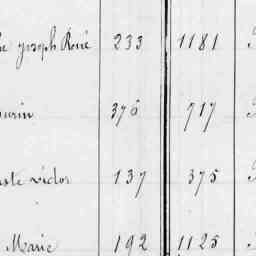 Joseph René 233 1181
376 717
Victor 137 375
Marie 192 1125